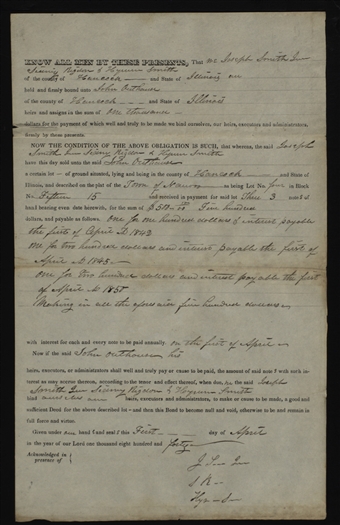 KNOW ALL MEN BY THESE PRESENTS, That we Joseph Smith Jr
Sidney Rigdon & Hyrum Smith
of the county of Hancock and State of Illinois are
held and firmly bound unto John Outhouse
of the county of Hancock and State of Illinois
heirs and assigns in the sum of One Thousand
dollars for the payment of which well and truly to be made we bind ourselves, our heirs, executors and administrators,
firmly by these presents.
NOW THE CONDITION OF THE ABOVE OBLIGATION IS SUCH, that whereas, the said Joseph
Smith Jr Sidney Rigdon & Hyrum Smith
have this day sold unto the said John Outhouse
a certain lot of ground situated, lying and being in the county of Hancock and State of
Illinois, and described on the plat of the Town of Nauvoo as being Lot No. four in Block
No. Fifteen 15 and received in payment for said lot Three 3 notes of
hand bearing even date herewith, for the sum of $500.00 Five hundred
dollars, and payable as follows. One for one hundred dollars & interest payable
the first of April AD 1842
One for two hundred dollars and interest payable the first of
April AD 1845
One for two hundred dollars and interest payable the first
of April AD 1850
Making in all the aforesaid five hundred dollars
with interest for each and every note to be paid annually on the first of April
Now if the said John Outhouse his
heirs, executors, or administrators shall well and truly pay or cause to be paid, the amount of said notes with each in-
terest as may accrue thereon, according to the tenor and effect thereof, when due, the said Joseph
Smith Jr Sidney Rigdon & Hyrum Smith
bind heirs, executors and administrators, to make or cause to be made, a good and
sufficient Deed for the above described lot and then this Bond to become null and void, otherwise to be and remain in
full force and virtue.
Given under our hands and seals this First day of April
in the year of our Lord one thousand eight hundred and forty
Acknowledged in
presence of
J S Jr
S R
Hyrum S